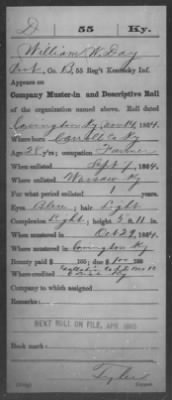 D | 55 | Ky.
William W. Day
Pvt., Co. B, 55 Reg't Kentucky Inf.
Appears on
Company Muster-in and Descriptive Roll
of the organization named above. Roll dated
Covington Ky, Nov 14, 1864.
Where born Carroll Co Ky
Age 28 y'rs; occupation Farmer
When enlisted Sept 7, 1864.
Where enlisted Warsaw Ky
For what period enlisted 1 years.
Eyes Blue; hair Light
Complexion Light; height 5 ft. 11 in.
When mustered in Oct 29, 1864.
Where mustered in Covington Ky
Bounty paid $ 100; due $ 100
Where credited Gallatin
Company to which assigned
Remarks:
NEXT ROLL ON FILE, APR. 1865
Book mark:
Tyler
Copyist.